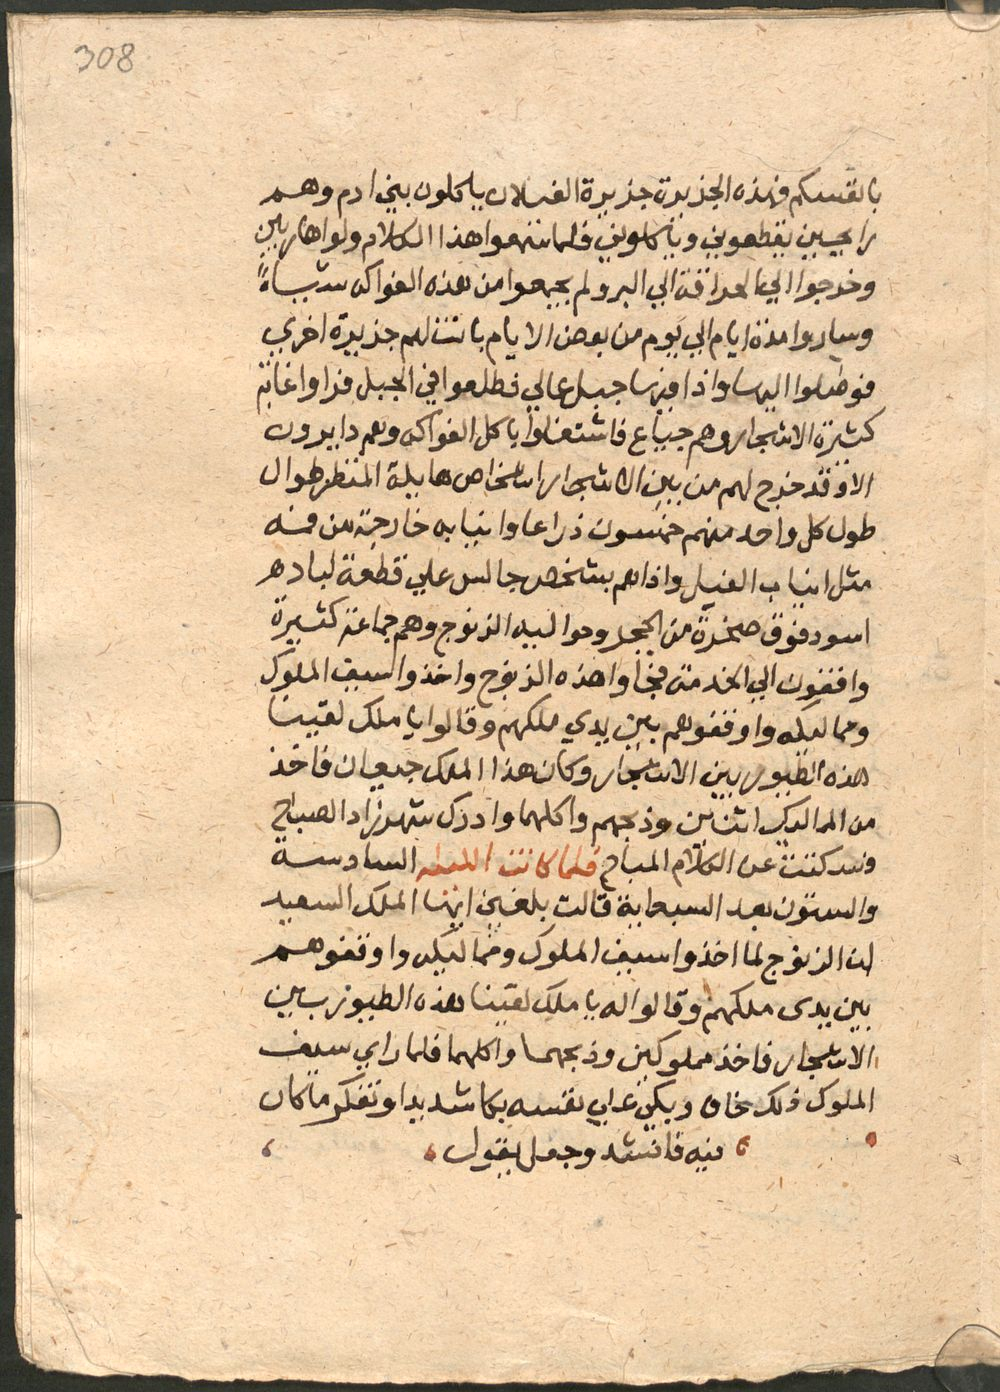 308
بانفسكم فهذه الجزيرة جزيرة الغيلان ياكلون بني ادم وهم
رايحين يقطعوني وياكلوني فلما سمعوا هذا الكلام ولوا هاربين
وخرجوا الي الحراقة الي البر ولم يجمعوا من هذه الفواكه شياءً
وساروا مدة ايام الي يوم من بعض الايام بانت لهم جزيرة اخري
فوصلوا اليها واذا فيها جبل عالي فطلعوا في الجبل فراوا غابة
كثيرة الاشجار وهم جياع فاشتغلوا باكل الفواكه وهم دايرون
الا وقد خرج لهم من بين الاشجار اشخاص هايلة المنظر طوال
طول كل واحد منهم خمسون ذراعا وانيابه خارجة من فمه
مثل انياب الفيل واذا هم بشخص جالس علي قطعة لباده
اسود فوق صخرة من الحجر وحواليه الزنوج وهم جماعة كثيرة
واقفون الي الخدمة فجاوا هذه الزنوج واخذوا سيف الملوك
ومماليكه واوقفوهم بين يدي ملكهم وقالوا يا ملك لقينا
هذه الطيور بين الاشجار وكان هذا الملك جيعان فاخذ
من المماليك اثنين وذبحهم واكلهما وادرك شهرزاد الصباح
فسكتت عن الكلام المباح فلما كانت الليلة السادسة
والستون بعد السبعماية قالت بلغني ايها الملك السعيد
ان الزنوج لما اخذوا سيف الملوك ومماليكه واوقفوهم
بين يدي ملكهم وقالوا له يا ملك لقينا هذه الطيور بين
الاشجار فاخذ مملوكين وذبحهما واكلهما فلما راي سيف
الملوك ذلك خاف وبكي علي نفسه بكا شديدا وتفكر ما كان
فيه فانشد وجعل يقول